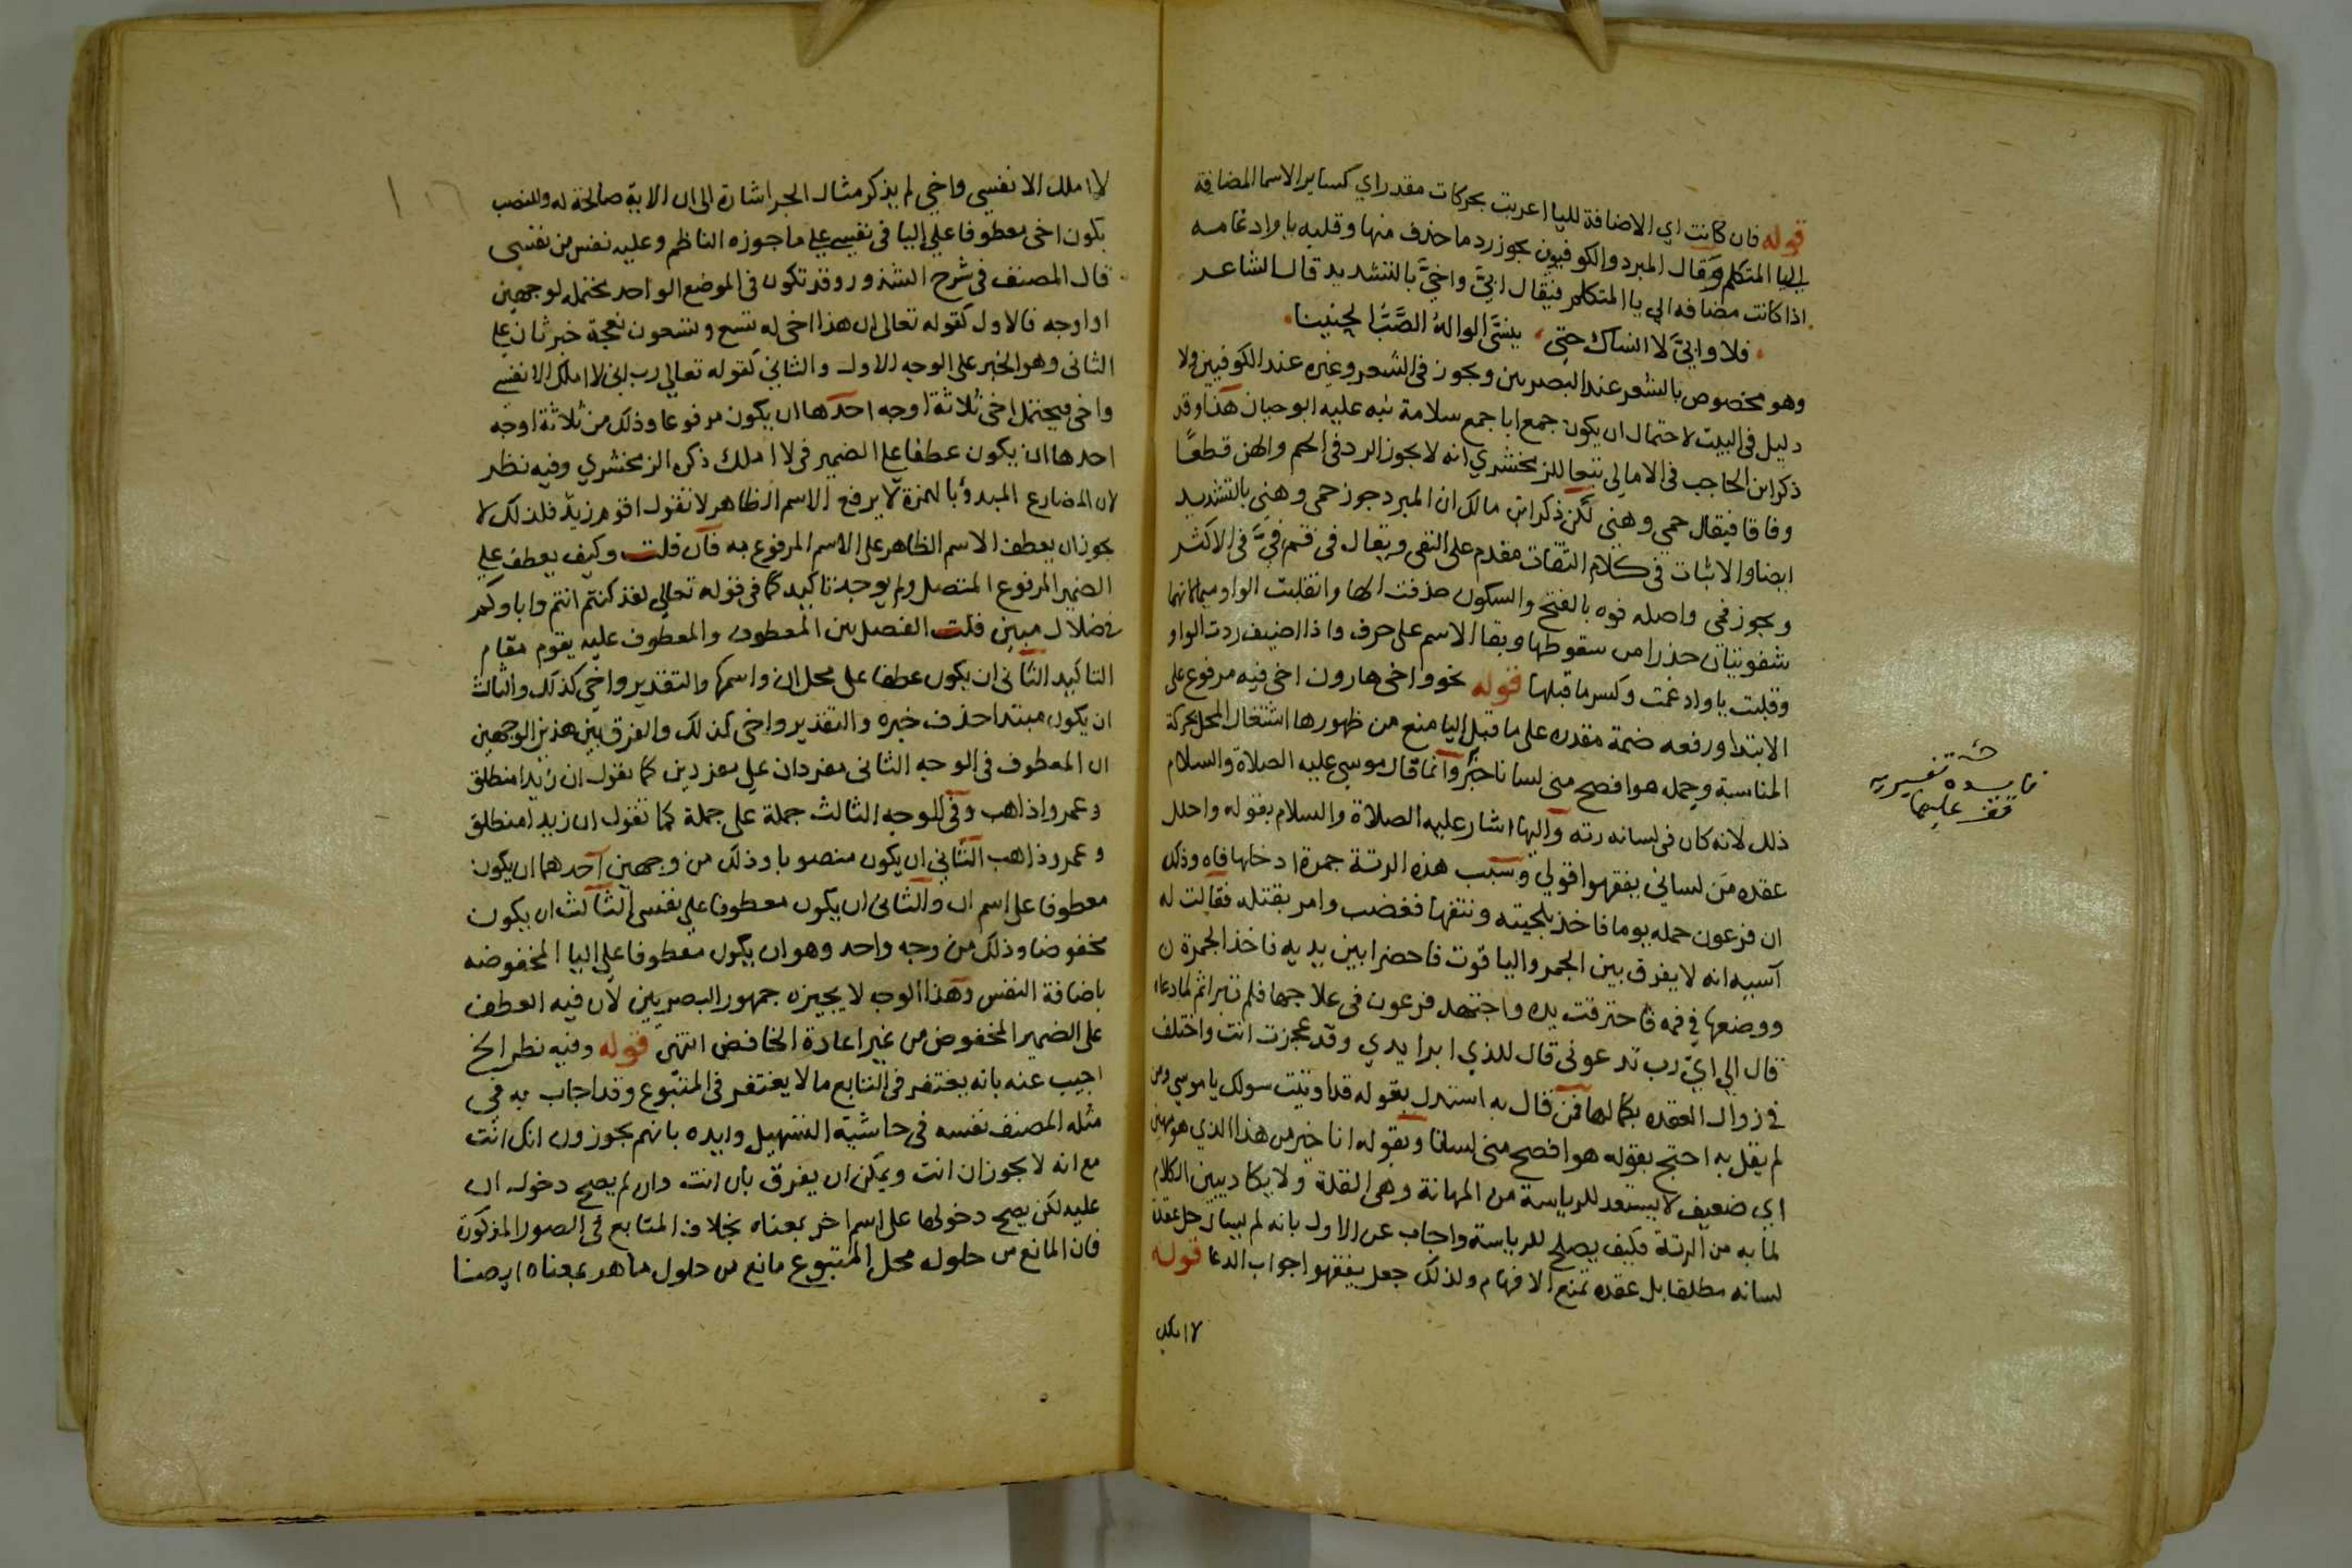 قوله فان كانت اي الاضافة لليا اعربت بحركات مقدراي كساير الاسما المضافة
الي اليا المتكلم وقال المبرد والكوفيون يجوز رد ما حذف منها وقلبه يا وادغامه
اذا كانت مضافه الي يا المتكلم فيقال ابيَّ واخيَّ بالتشديد قال الشاعر
فلا وابيَّ لا انساك حتي ينسَّي الوالهُ الصَّبُّ الحنينا
وهو مخصوص بالشعر عند البصريين ويجوز في الشعر وغيره عند الكوفيين ولا
دليل في البيت لاحتمال ان يكون جمع ابا جمع سلامة نبه عليه ابو حيان هذا وقد
ذكر ابن الحاجب في الامالي تبعا للزمخشري انه لا يجوز الرد في الحم والهن قطعًا
وفاقا فيقال حمي وهني لكن ذكر ابن مالك ان المبرد جوز حمي وهني بالتشديد
ايضا والاثبات في كلام الثقات مقدم علي النفي ويقال في فم فيَّ في الاكثر
ويجوز فمي واصله فوه بالفتح والسكون حذفت الها وانقلبت الواو ميما لانهما
شفويتان حذرا من سقوطها وبقا الاسم علي حرف واذا اضيف ردت الواو
وقلبت يا وادغمت وكسر ما قبلها قوله نحو واخي هارون اخي فيه مرفوع علي
الابتدا ورفعه ضمة مقدره علي ما قبل اليا منع من ظهورها اشتغال المحل بحركة
المناسبة وجمله هو افصح مني لسانا خبر وانما قال موسي عليه الصلاة والسلام
ذلك لانه كان في لسانه رته واليها اشار عليه الصلاة والسلام بقوله واحلل
عقده من لساني يفقهوا قولي وسبب هذه الرتة جمرة ادخلها فاه وذلك
ان فرعون حمله يوما فاخذ بلحيته ونتفها فغضب وامر بقتله فقالت له
آسيه انه لا يفرق بين الجمر والياقوت فاحضرا بين يديه فاخذ الجمرة
ووضعها في فمه فاحترقت يده واجتهد فرعون في علاجها فلم تبرا ثم لما دعاه
قال الي ايّ رب تدعوني قال للذي ابرا يدي وقد عجزت انت واختلف
في زوال العقده بكمالها فمن قال به استدل بقوله قد اوتيت سولك يا موسي ومن
لم يقل به احتج بقوله هو افصح مني لسانا وبقوله انا خير من هذا الذي هو مهين
اي ضعيف لا يستعد للرياسة من المهانة وهي القلة ولا يكاد يبين الكلام
لما به من الرتة فكيف يصلح للرياسة واجاب عن الاول بانه لم يسال حل عقدة
لسانه مطلقا بل عقده تمنع الافهام ولذلك جعل يفقهوا جواب الدعا قوله
لا املك
فايده تفسيريه
قف عليها
لا املك الا نفسي واخي لم يذكر مثال الجر اشارة الي ان الاية صالحة له وللنصب
بكون اخي معطوفا علي اليا في نفسي علي ما جوزه الناظم وعليه نفس من نفسي
قال المصنف في شرح الشذور وقد تكون في الموضع الواحد محتمله لوجهين
او اوجه فالاول كقوله تعالي ان هذا اخي له تسع وتسعون نعجة خبر ثان علي
الثاني وهو الخبر علي الوجه الاول والثاني كقوله تعالي رب اني لا املك الا نفسي
واخي فيحتمل اخي ثلاثة اوجه احدها ان يكون مرفوعا وذلك من ثلاثة اوجه
احدها ان يكون عطفا علي الضمير في لا املك ذكره الزمخشري وفيه نظر
لان المضارع المبدؤ بالهمزة لا يرفع الاسم الظاهر لا تقول اقوم زيد فلذلك لا
يجوز ان يعطف الاسم الظاهر علي الاسم المرفوع به فان قلت وكيف يعطف علي
الضمير المرفوع المتصل ولم يوجد تاكيد كما في قوله تعالي لقد كنتم انتم واباوكم
في ضلال مبين قلت الفصل بين المعطوف والمعطوف عليه يقوم مقام
التاكيد الثاني ان يكون عطفا علي محل ان واسمها والتقدير واخي كذلك والثالث
ان يكون مبتدا حذف خبره والتقدير واخي كذلك والفرق بين هذين الوجهين
ان المعطوف في الوجه الثاني مفردان علي مفردين كما تقول ان زيدا منطلق
وعمروا ذاهب وفي الوجه الثالث جملة علي جملة كما تقول ان زيدا منطلق
وعمرو ذاهب الثاني ان يكون منصوبا وذلك من وجهين احدهما ان يكون
معطوفا علي اسم ان والثاني ان يكون معطوفا علي نفسي الثالث ان يكون
مخفوضا وذلك من وجه واحد وهو ان يكون معطوفا علي اليا المخفوضه
باضافة النفس وهذا الوجه لا يجيزه جمهور البصريين لان فيه العطف
علي الضمير المخفوض من غير اعادة الخافض انتهي قوله وفيه نظر الخ
اجيب عنه بانه يغتفر في التابع ما لا يغتفر في المتبوع وقد اجاب به في
مثله المصنف نفسه في حاشية التسهيل وايده بانهم يجوزون انك انت
مع انه لا يجوز ان انت ويمكن ان يفرق بان انت وان لم يصح دخول ان
عليه لكن يصح دخولها علي اسم اخر بمعناه بخلاف المتابع في الصور المذكورة
فان المانع من حلوله محل المتبوع مانع من حلول ما هو بمعناه ايضا